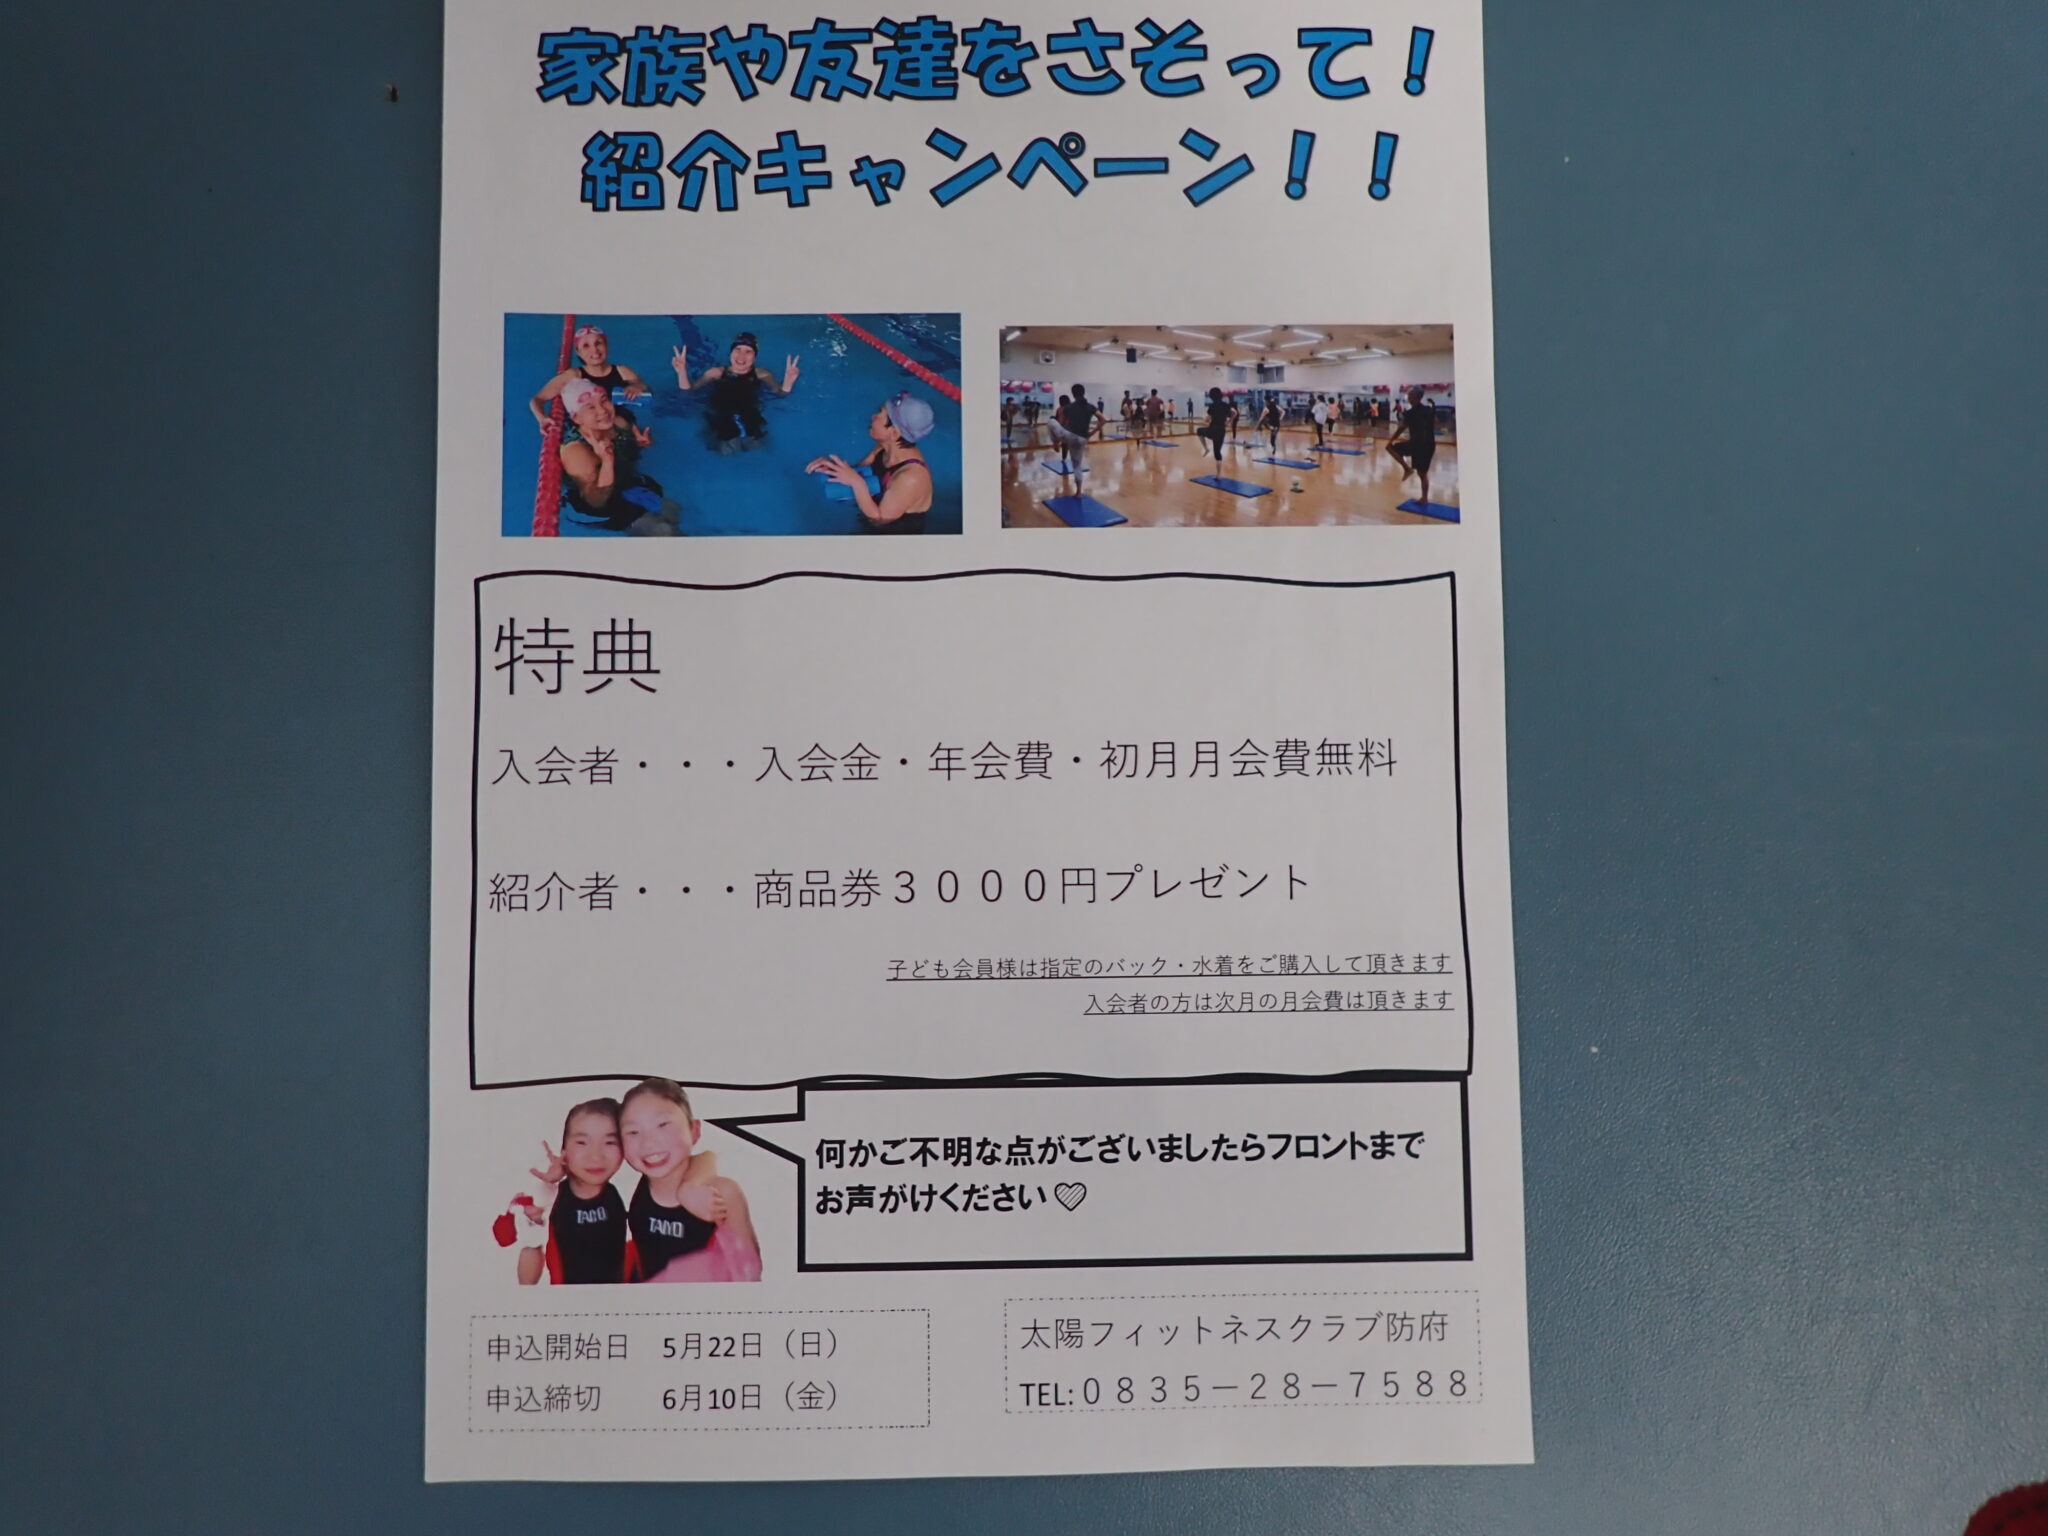 家族や友達をさそって！
紹介キャンペーン！！
特典
入会者・・・入会金・年会費・初月月会費無料
紹介者・・・商品券３０００円プレゼント
子ども会員様は指定のバック・水着をご購入して頂きます
入会者の方は次月の月会費は頂きます
何かご不明な点がございましたらフロントまで
お声がけください♡
TAIYO
TAIYO
申込開始日　5月22日（日）
申込締切　　6月10日（金）
太陽フィットネスクラブ防府
TEL:０８３５－２８－７５８８